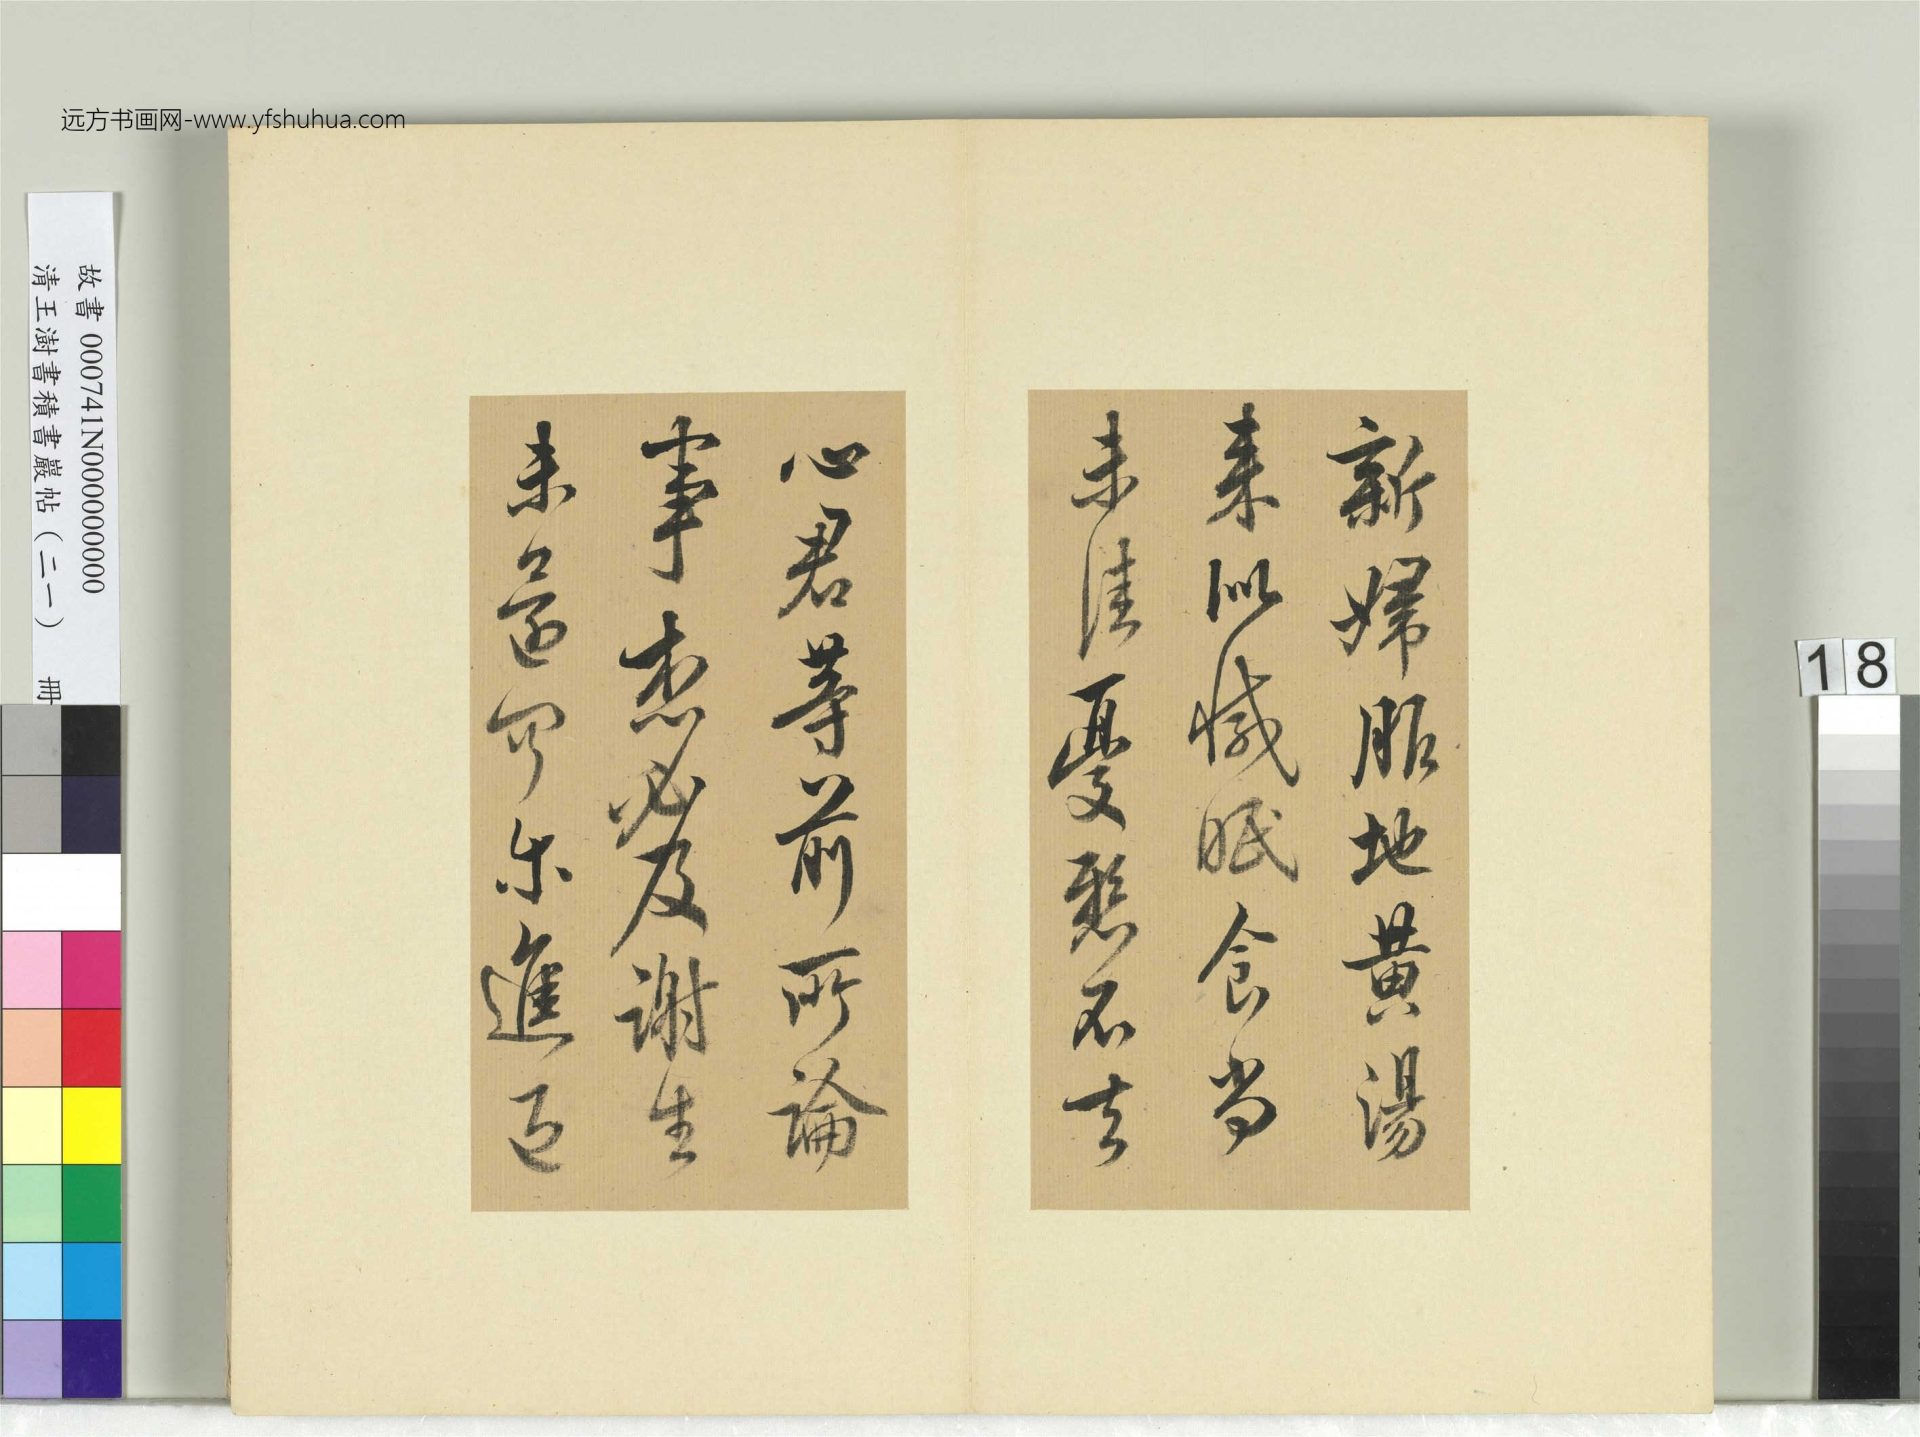 远方书画网-www.yfshuhua.com
新婦服地黃湯
来似減眠食尚
未佳憂懸不去
心君等前所論
事想必及謝生
未還可尓進退
故書 000741N000000000
清王澍書積書巖帖（二一） 冊
18